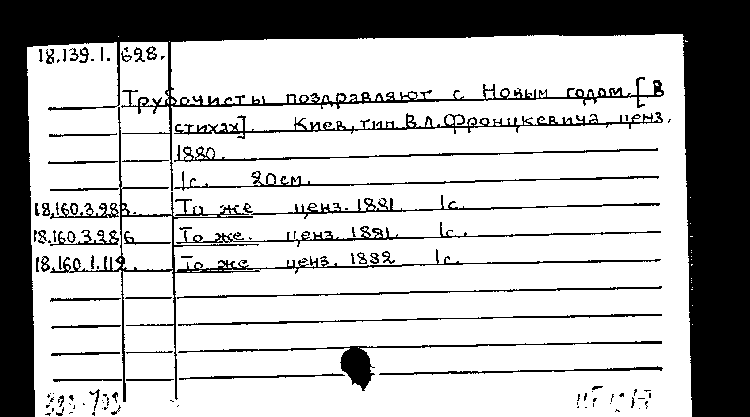 18.139.1. 628.
Трубочисты поздравляют с Новым годом. [В
стихах]. Киев, тип. В.Л. Фронцкевича, ценз.
1880.
1с. 20см.
18.160.3.283. То же ценз. 1881 1с.
18.160.3.286. То же. ценз. 1881. 1с.
18.160.1.112. То же ценз. 1882 1с.